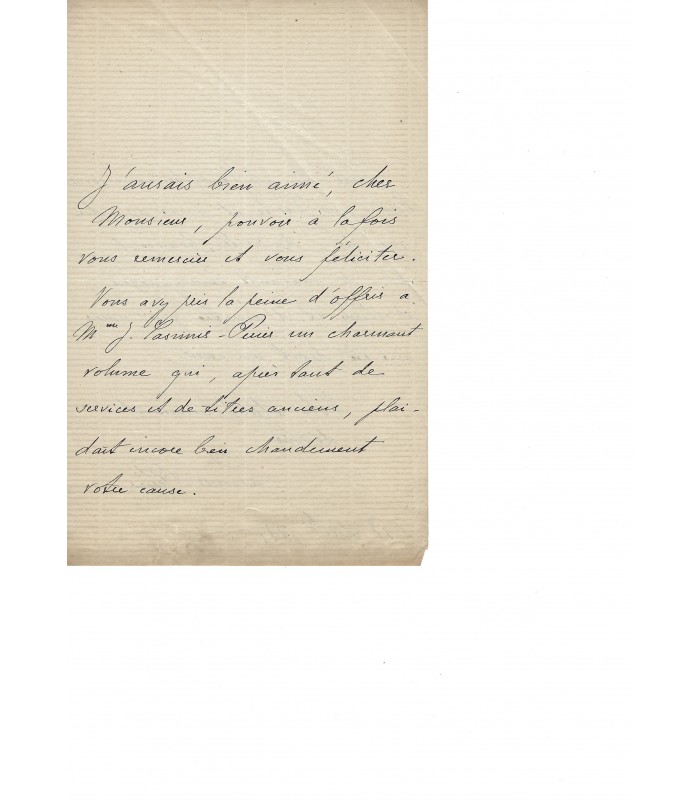 J'aurais bien aimé, cher
Monsieur, pouvoir à la fois
vous remercier et vous féliciter.
Vous avez pris la peine d'offrir à
Mme J. Casimir-Perier un charmant
volume qui, après tant de
services et de titres anciens, plai-
dait encore bien chaudement
votre cause.